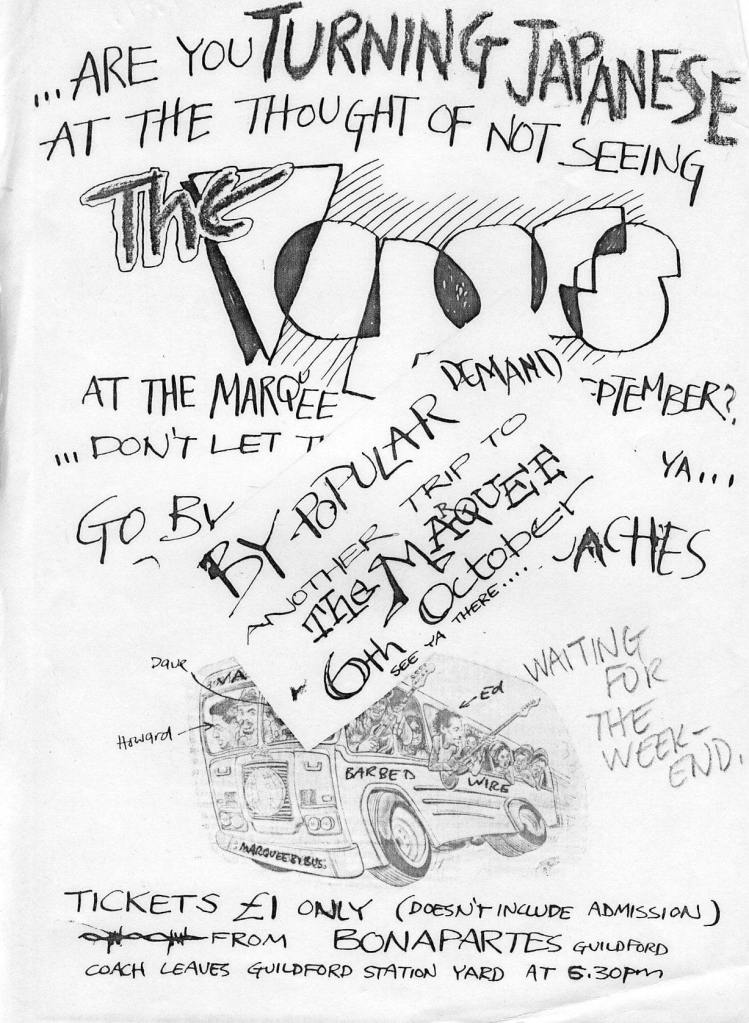 ...ARE YOU TURNING JAPANESE
AT THE THOUGHT OF NOT SEEING
The VAPORS
AT THE MARQUEE
PTEMBER?
...DON'T LET T
YA...
GO BY
ACHES
BY POPULAR DEMAND
ANOTHER TRIP TO
The MARQUEE
6th October
SEE YA THERE.....
Dave
VA
Ed
Howard
WAITING
FOR
THE
WEEK-
END.
BARBED WIRE
MARQUEE BY BUS
TICKETS £1 ONLY (DOESN'T INCLUDE ADMISSION)
FROM BONAPARTES GUILDFORD
COACH LEAVES GUILDFORD STATION YARD AT 5.30pm